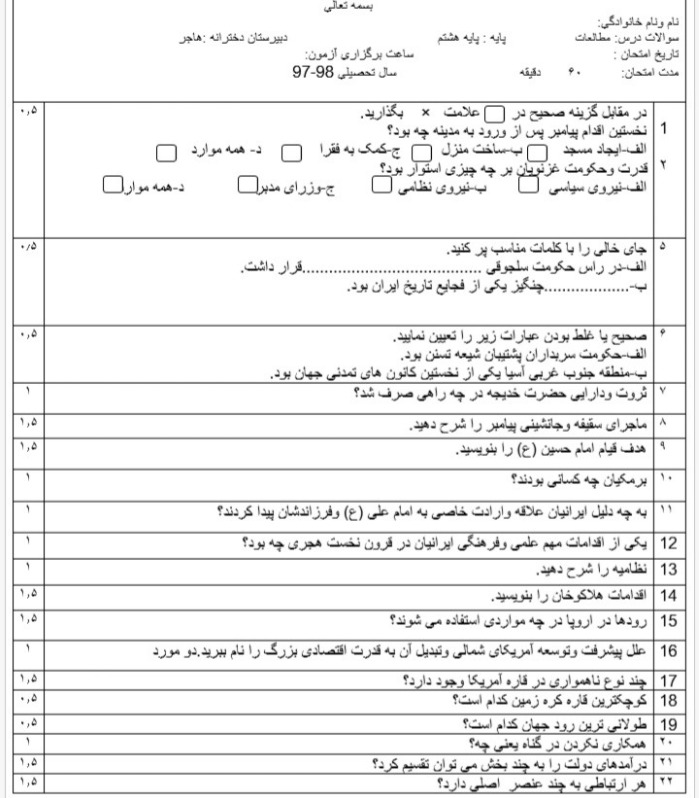 بسمه تعالی
نام ونام خانوادگی:
سوالات درس: مطالعات پایه : پایه هشتم دبیرستان دخترانه: هاجر
تاریخ امتحان : ساعت برگزاری آزمون:
مدت امتحان: ۶۰ دقیقه سال تحصیلی 97-98
در مقابل گزینه صحیح در □ علامت × بگذارید. ۰,۵
1 نخستین اقدام پیامبر پس از ورود به مدینه چه بود؟
الف-ایجاد مسجد □ ب-ساخت منزل □ ج-کمک به فقرا □ د- همه موارد □
۲ قدرت وحکومت غزنویان بر چه چیزی استوار بود؟
الف-نیروی سیاسی □ ب-نیروی نظامی □ ج-وزرای مدبر □ د-همه موارد □
۵ جای خالی را با کلمات مناسب پر کنید. ۰/۵
الف-در راس حکومت سلجوقی ........................................قرار داشت.
ب-...................چنگیز یکی از فجایع تاریخ ایران بود.
۶ صحیح یا غلط بودن عبارات زیر را تعیین نمایید. ۰,۵
الف-حکومت سربداران پشتیبان شیعه تسنن بود.
ب-منطقه جنوب غربی آسیا یکی از نخستین کانون های تمدنی جهان بود.
۷ ثروت ودارایی حضرت خدیجه در چه راهی صرف شد؟ ۱
۸ ماجرای سقیفه وجانشینی پیامبر را شرح دهید. ۱,۵
۹ هدف قیام امام حسین (ع) را بنویسید. ۱,۵
۱۰ برمکیان چه کسانی بودند؟ ۱
۱۱ به چه دلیل ایرانیان علاقه وارادت خاصی به امام علی (ع) وفرزاندشان پیدا کردند؟ ۱
12 یکی از اقدامات مهم علمی وفرهنگی ایرانیان در قرون نخست هجری چه بود؟ ۱
13 نظامیه را شرح دهید. ۱
14 اقدامات هلاکوخان را بنویسید. ۱,۵
15 رودها در اروپا در چه مواردی استفاده می شوند؟ ۱,۵
16 علل پیشرفت وتوسعه آمریکای شمالی وتبدیل آن به قدرت اقتصادی بزرگ را نام ببرید.دو مورد ۱
17 چند نوع ناهمواری در قاره آمریکا وجود دارد؟ ۱,۵
18 کوچکترین قاره کره زمین کدام است؟ ۰,۵
19 طولانی ترین رود جهان کدام است؟ ۰,۵
۲۰ همکاری نکردن در گناه یعنی چه؟ ۱
۲۱ درآمدهای دولت را به چند بخش می توان تقسیم کرد؟ ۱,۵
۲۲ هر ارتباطی به چند عنصر اصلی دارد؟ ۱,۵